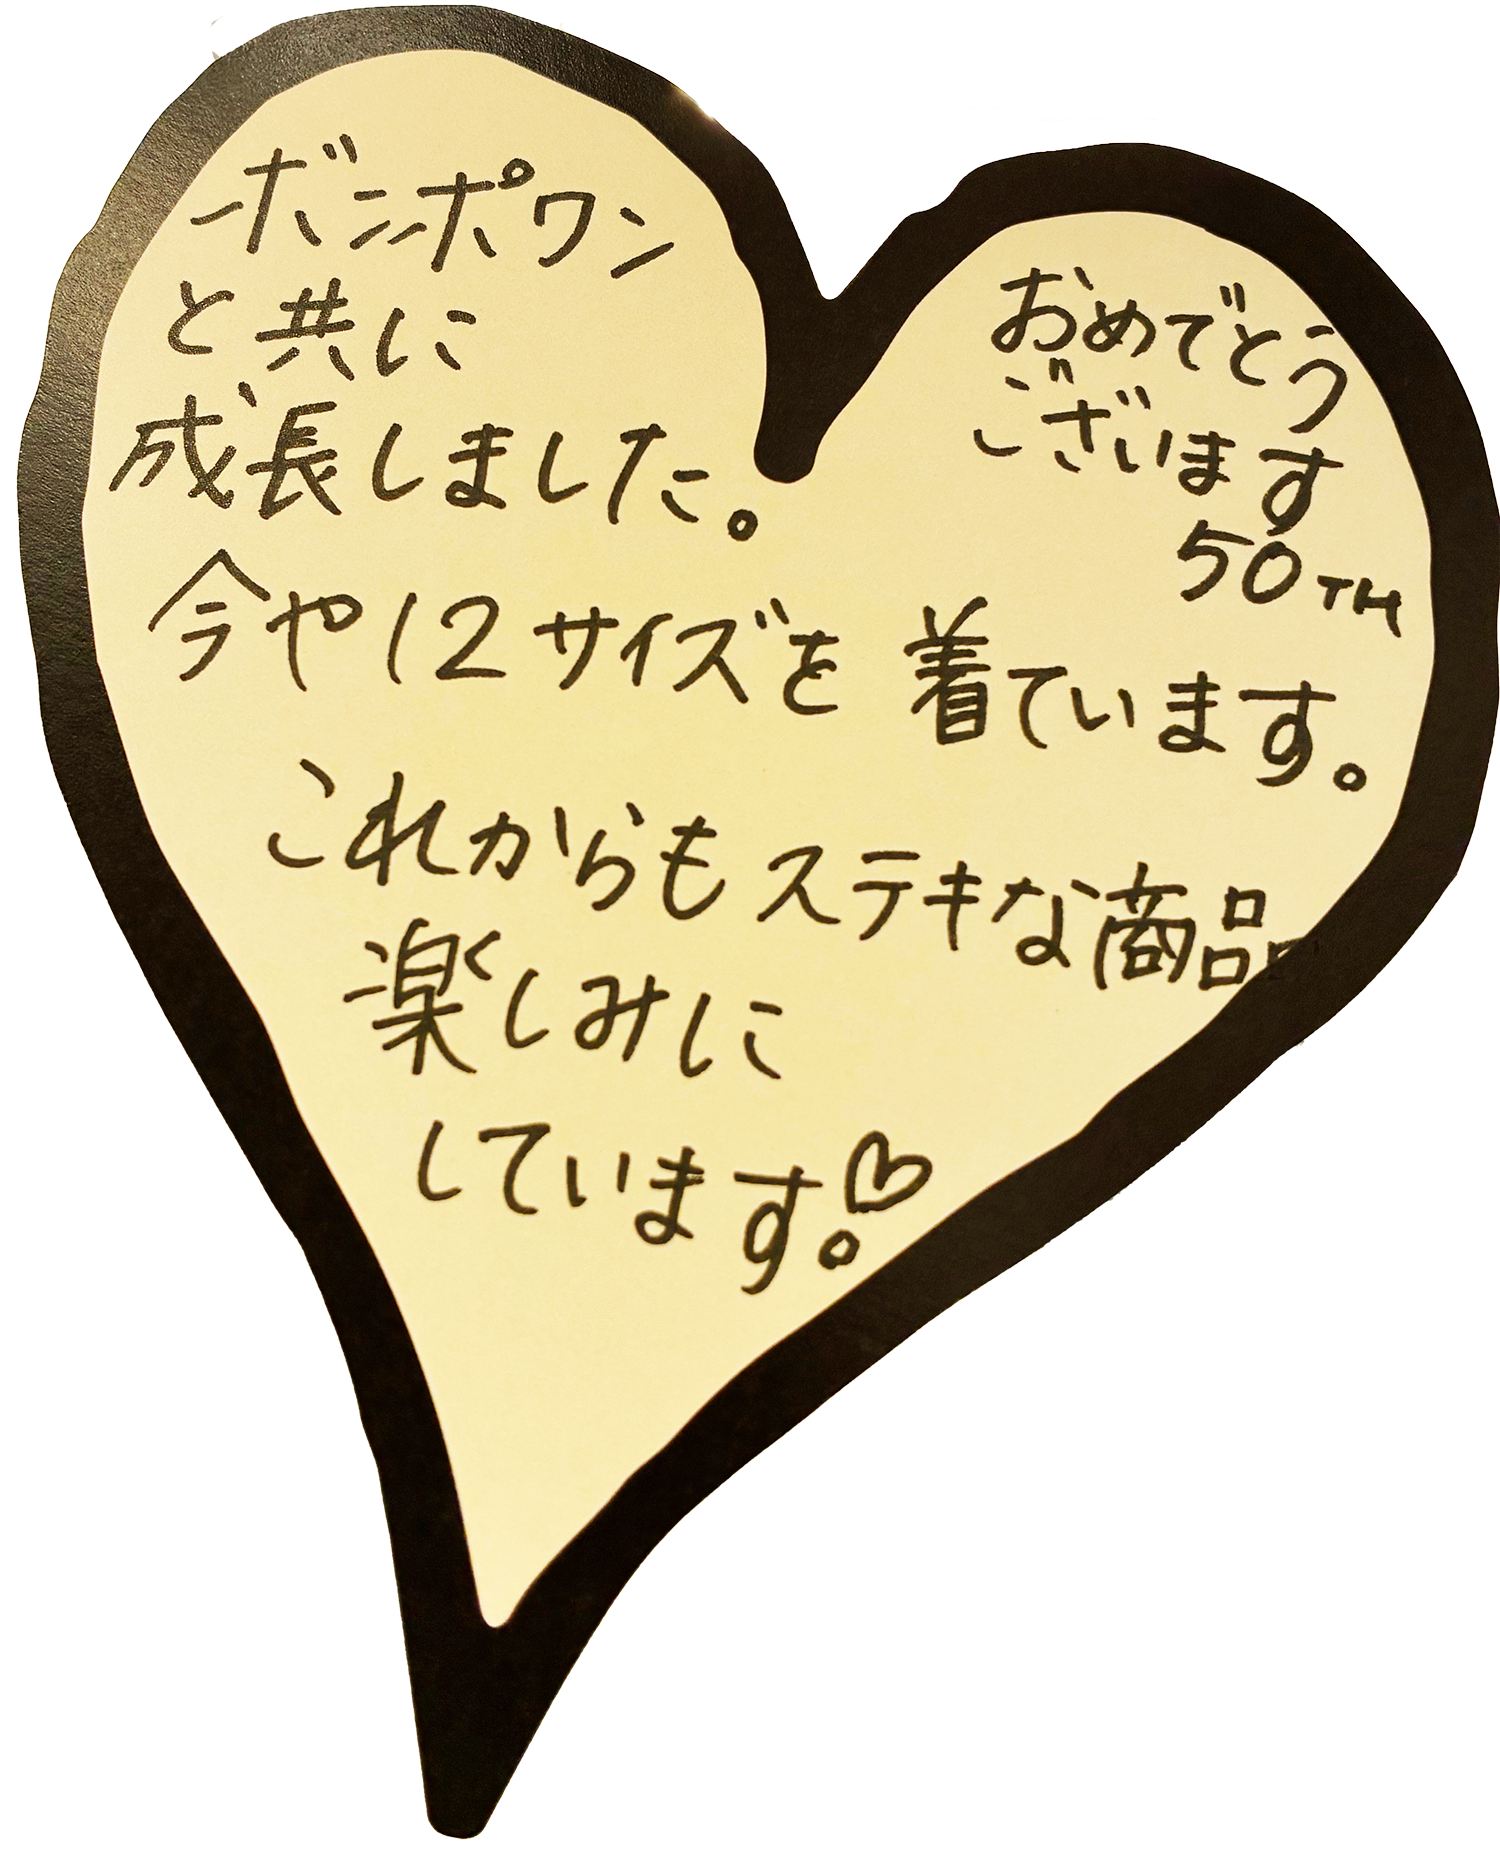 ボンポワン
と共に
成長しました。
おめでとう
ございます
50TH
今や12サイズを着ています。
これからもステキな商品
楽しみに
しています。♡